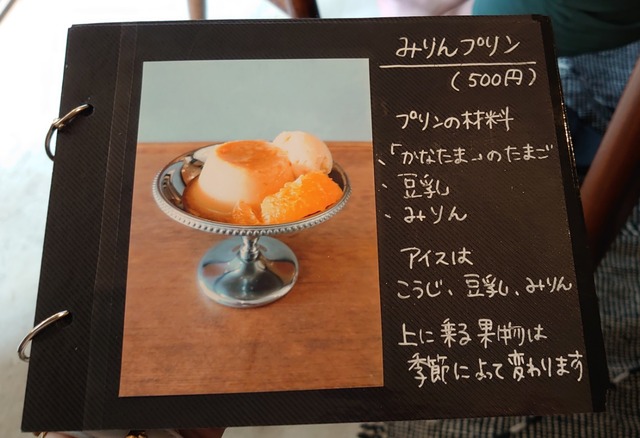 みりんプリン
(500円)
プリンの材料
・「かなたま」のたまご
・豆乳
・みりん
アイスは
こうじ、豆乳、みりん
上に乗る果物は
季節によって変わります